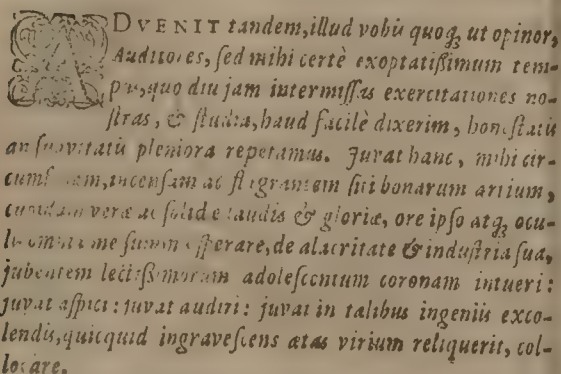 ADVENIT tandem, illud vobis quoq, ut opinor,
Auditores, sed mihi certè exoptatißimum tem-
pus, quo diu jam intermissas exercitationes no-
stras, & studia, haud facilè dixerim, honestatis
an suavitatis pleniora repetamus. Juvat hanc, mihi cir-
incensam ac flagrantem siti bonarum artium,
veræ ac laudis & gloriæ, ore ipso atq, ocu-
me de alacritate & industria sua,
jubentem lectißimorum adolescentum coronam intueri:
juvat aspici: juvat audiri: juvat in talibus ingeniis exco-
lendis, quicquid ingravescens ætas virium reliquerit, col-
locare.